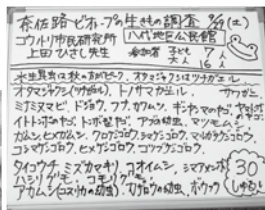 奈佐路ビオトープの生きもの調査 9/29(土)
コウノトリ市民研究所 八代地区公民館
上田ひさし先生 参加者 子ども 7人
大人 16人
水生昆虫は秋の方がピーク、オタマジャクシはツチガエル
オタマジャクシ(ツチガエル)、トノサマガエル、サワガニ
ミナミヌマビ、ドジョウ、フナ、カワムツ、ギンヤンマのヤゴ
イトトンボのヤゴ、トンボ のヤゴ、アブの幼虫、マツモムシ
ガムシ、ヒメガムシ、クロゲンゴロウ、シマゲンゴロウ、マルガタゲンゴロウ
コシマゲンゴロウ、ヒメゲンゴロウ、コツブゲンゴロウ
タイコウチ、ミズカマキリ、コオイムシ、シマアメンボ
ハシリグモ、コモリグモ
アカムシ(ユスリカの幼虫)、カゲロウの幼虫、ホウネン
30しゅるい